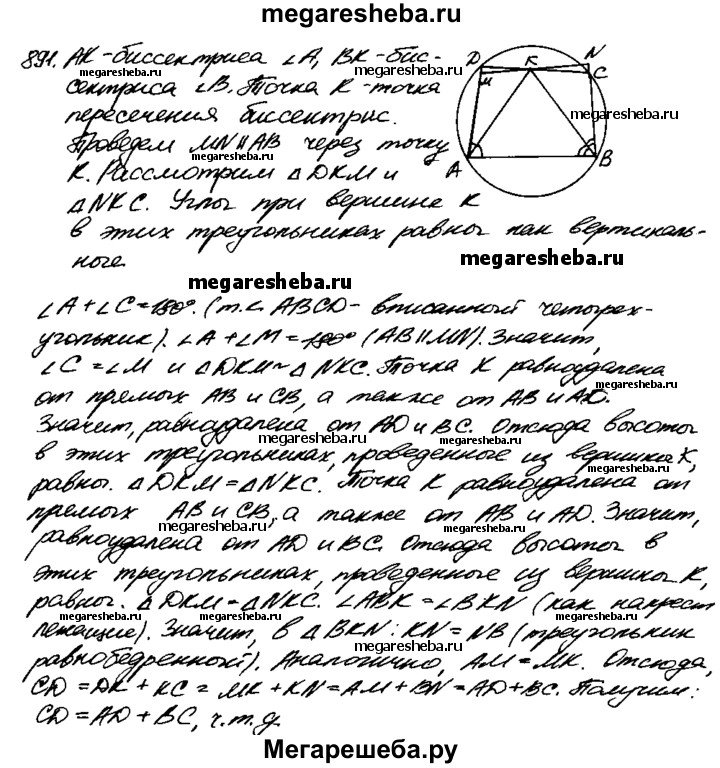 megaresheba.ru
891. АК - биссектриса ∠А, ВК - бис-
megaresheba.ru
megaresheba.ru
сектриса ∠В. Точка К - точка
пересечения биссектрис.
Проведем MN || AB через точку
megaresheba.ru
К. Рассмотрим △DKM и
△NKC. Углы при вершине К
в этих треугольниках равны как вертикаль-
ные.
D K N
M C
megaresheba.ru
A B
megaresheba.ru
megaresheba.ru
∠A + ∠C = 180°. (т.к. ABCD - вписанный четырех-
угольник). ∠A + ∠M = 180° (AB || MN). Значит,
megaresheba.ru
∠C = ∠M и △DKM ~ △NKC. Точка К равноудалена
megaresheba.ru
от прямых АВ и СВ, а также от АВ и AD.
Значит, равноудалена от AD и BC. Отсюда высоты
megaresheba.ru
в этих треугольниках, проведенные из вершины К,
megaresheba.ru
равны. △DKM = △NKC. Точка К равноудалена от
прямых АВ и СВ, а также от АВ и AD. Значит,
megaresheba.ru
megaresheba.ru
равноудалена от AD и BC. Отсюда высоты в
этих треугольниках, проведенные из вершины К,
megaresheba.ru
равны. △DKM = △NKC. ∠ABK = ∠BKN (как накрест
лежащие). Значит, в △BKN: KN = NB (треугольник
megaresheba.ru
равнобедренный). Аналогично, AM = MK. Отсюда,
megaresheba.ru
CD = DK + KC = MK + KN = AM + BN = AD + BC. Получим:
CD = AD + BC, ч.т.д.
Мегарешеба.ру